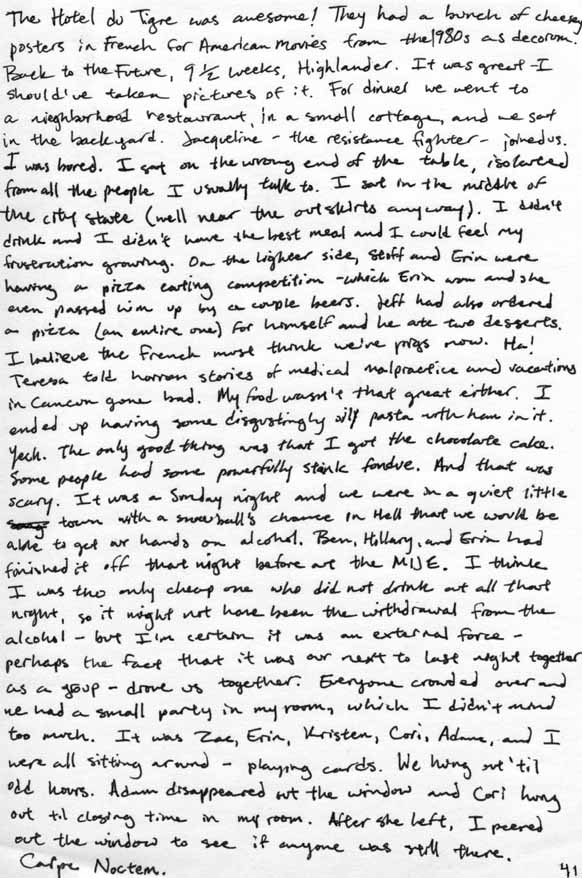 The Hotel du Tigre was awesome! They had a bunch of cheesey
posters in French for American movies from the 1980s as decorum.
Back to the Future, 9 1/2 weeks, Highlander. It was great - I
should've taken pictures of it. For dinner we went to
a nieghborhood restaurant, in a small cottage, and we sat
in the backyard. Jacqueline - the resistance fighter - joined us.
I was bored. I sat on the wrong end of the table, isolated
from all the people I usually talk to. I sat in the middle of
the city state (well near the outskirts anyway). I didn't
drink and I didn't have the best meal and I could feel my
frustration growing. On the lighter side, Stoff and Erin were
having a pizza eating competition - which Erin won and she
even passed him up by a couple beers. Jeff had also ordered
a pizza (an entire one) for himself and he ate two desserts.
I believe the French must think we're pigs now. Ha!
Teresa told horror stories of medical malpractice and vacations
in Cancun gone bad. My food wasn't that great either. I
ended up having some disgustingly oily pasta with ham in it.
Yech. The only good thing was that I got the chocolate cake.
Some people had some powerfully stink fondue. And that was
scary. It was a Sunday night and we were in a quiet little
town with a snowball's chance in Hell that we would be
able to get our hands on alcohol. Ben, Hillary, and Erin had
finished it off that night before at the MIJE. I think
I was the only cheap one who did not drink at all that
night, so it might not have been the withdrawal from the
alcohol - but I'm certain it was an external force -
perhaps the fact that it was our next to last night together
as a group - drove us together. Everyone crowded over and
we had a small party in my room, which I didn't mind
too much. It was Zac, Erin, Kristen, Cori, Adam, and I
were all sitting around - playing cards. We hung out 'til
odd hours. Adam disappeared out the window and Cori hung
out til closing time in my room. After she left, I peered
out the window to see if anyone was still there.
Carpe Noctem.
41